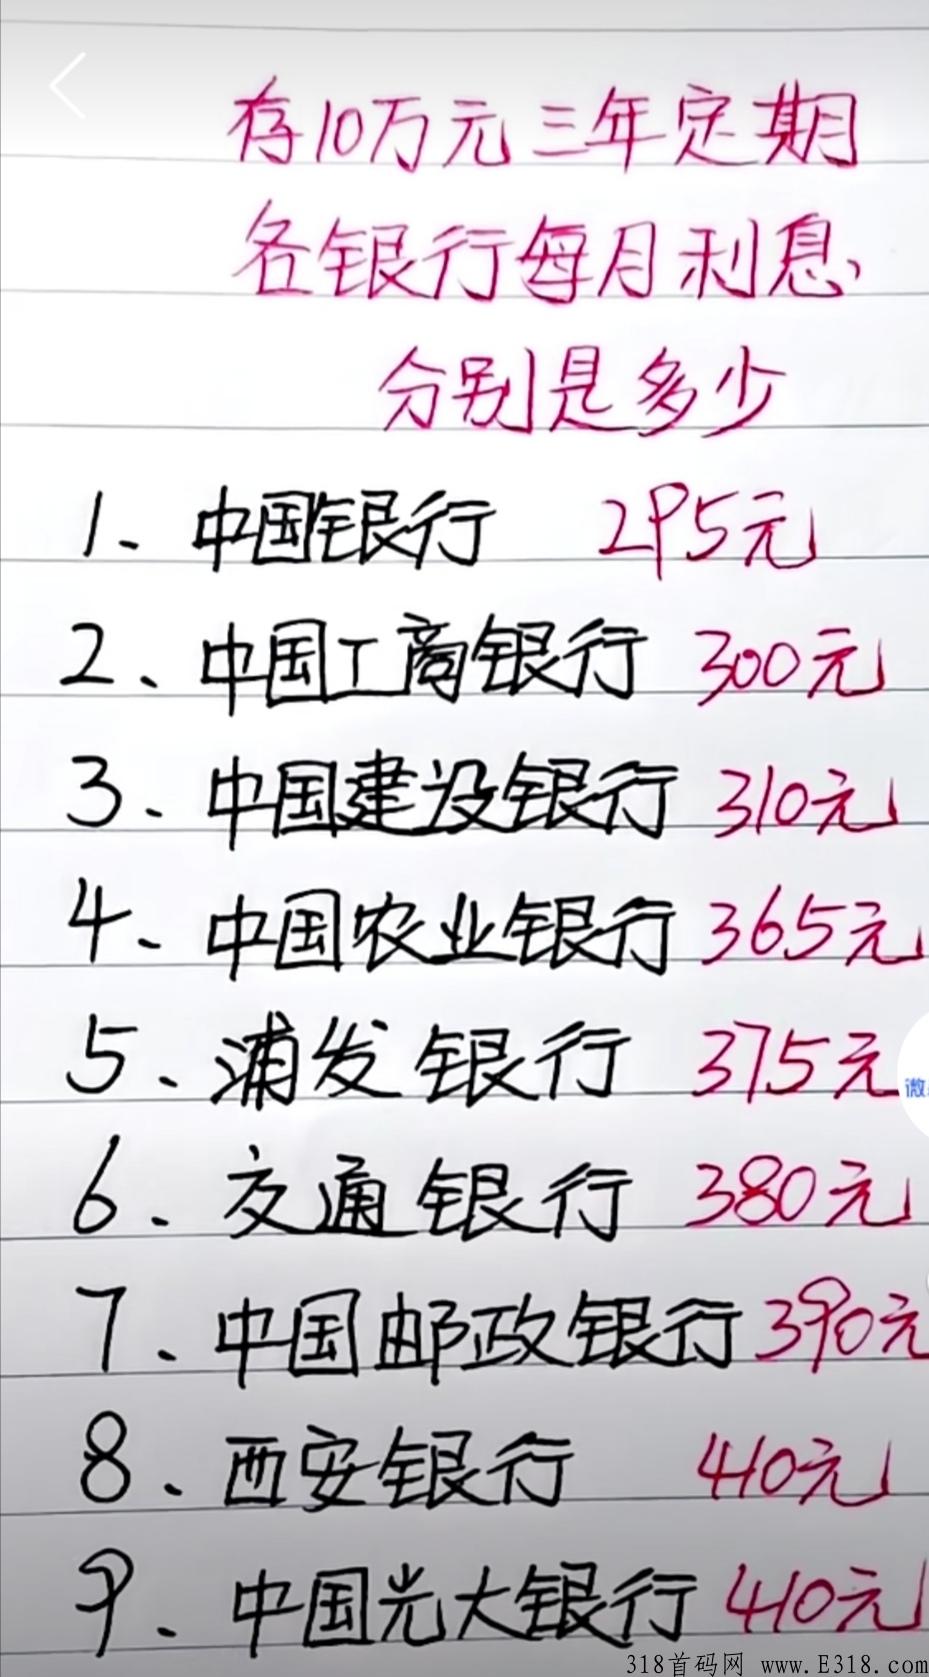 存10万元三年定期
各银行每月利息
分别是多少
1、中国银行 295元
2、中国工商银行 300元
3、中国建设银行 310元
4、中国农业银行 365元
5、浦发银行 375元
微
6、交通银行 380元
7、中国邮政银行 390元
8、西安银行 410元
9、中国光大银行 410元
318首码网 www.E318.com